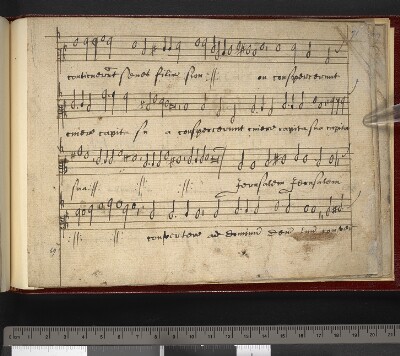 conticuerunt senes filiæ sion :||: on consperserunt
cinere capita su a consperserunt cinere capita sua capita
sua :||: :||: :||: Jerusalem Jerusalem
:||: :||: convertere ad dominum deum tuum conver